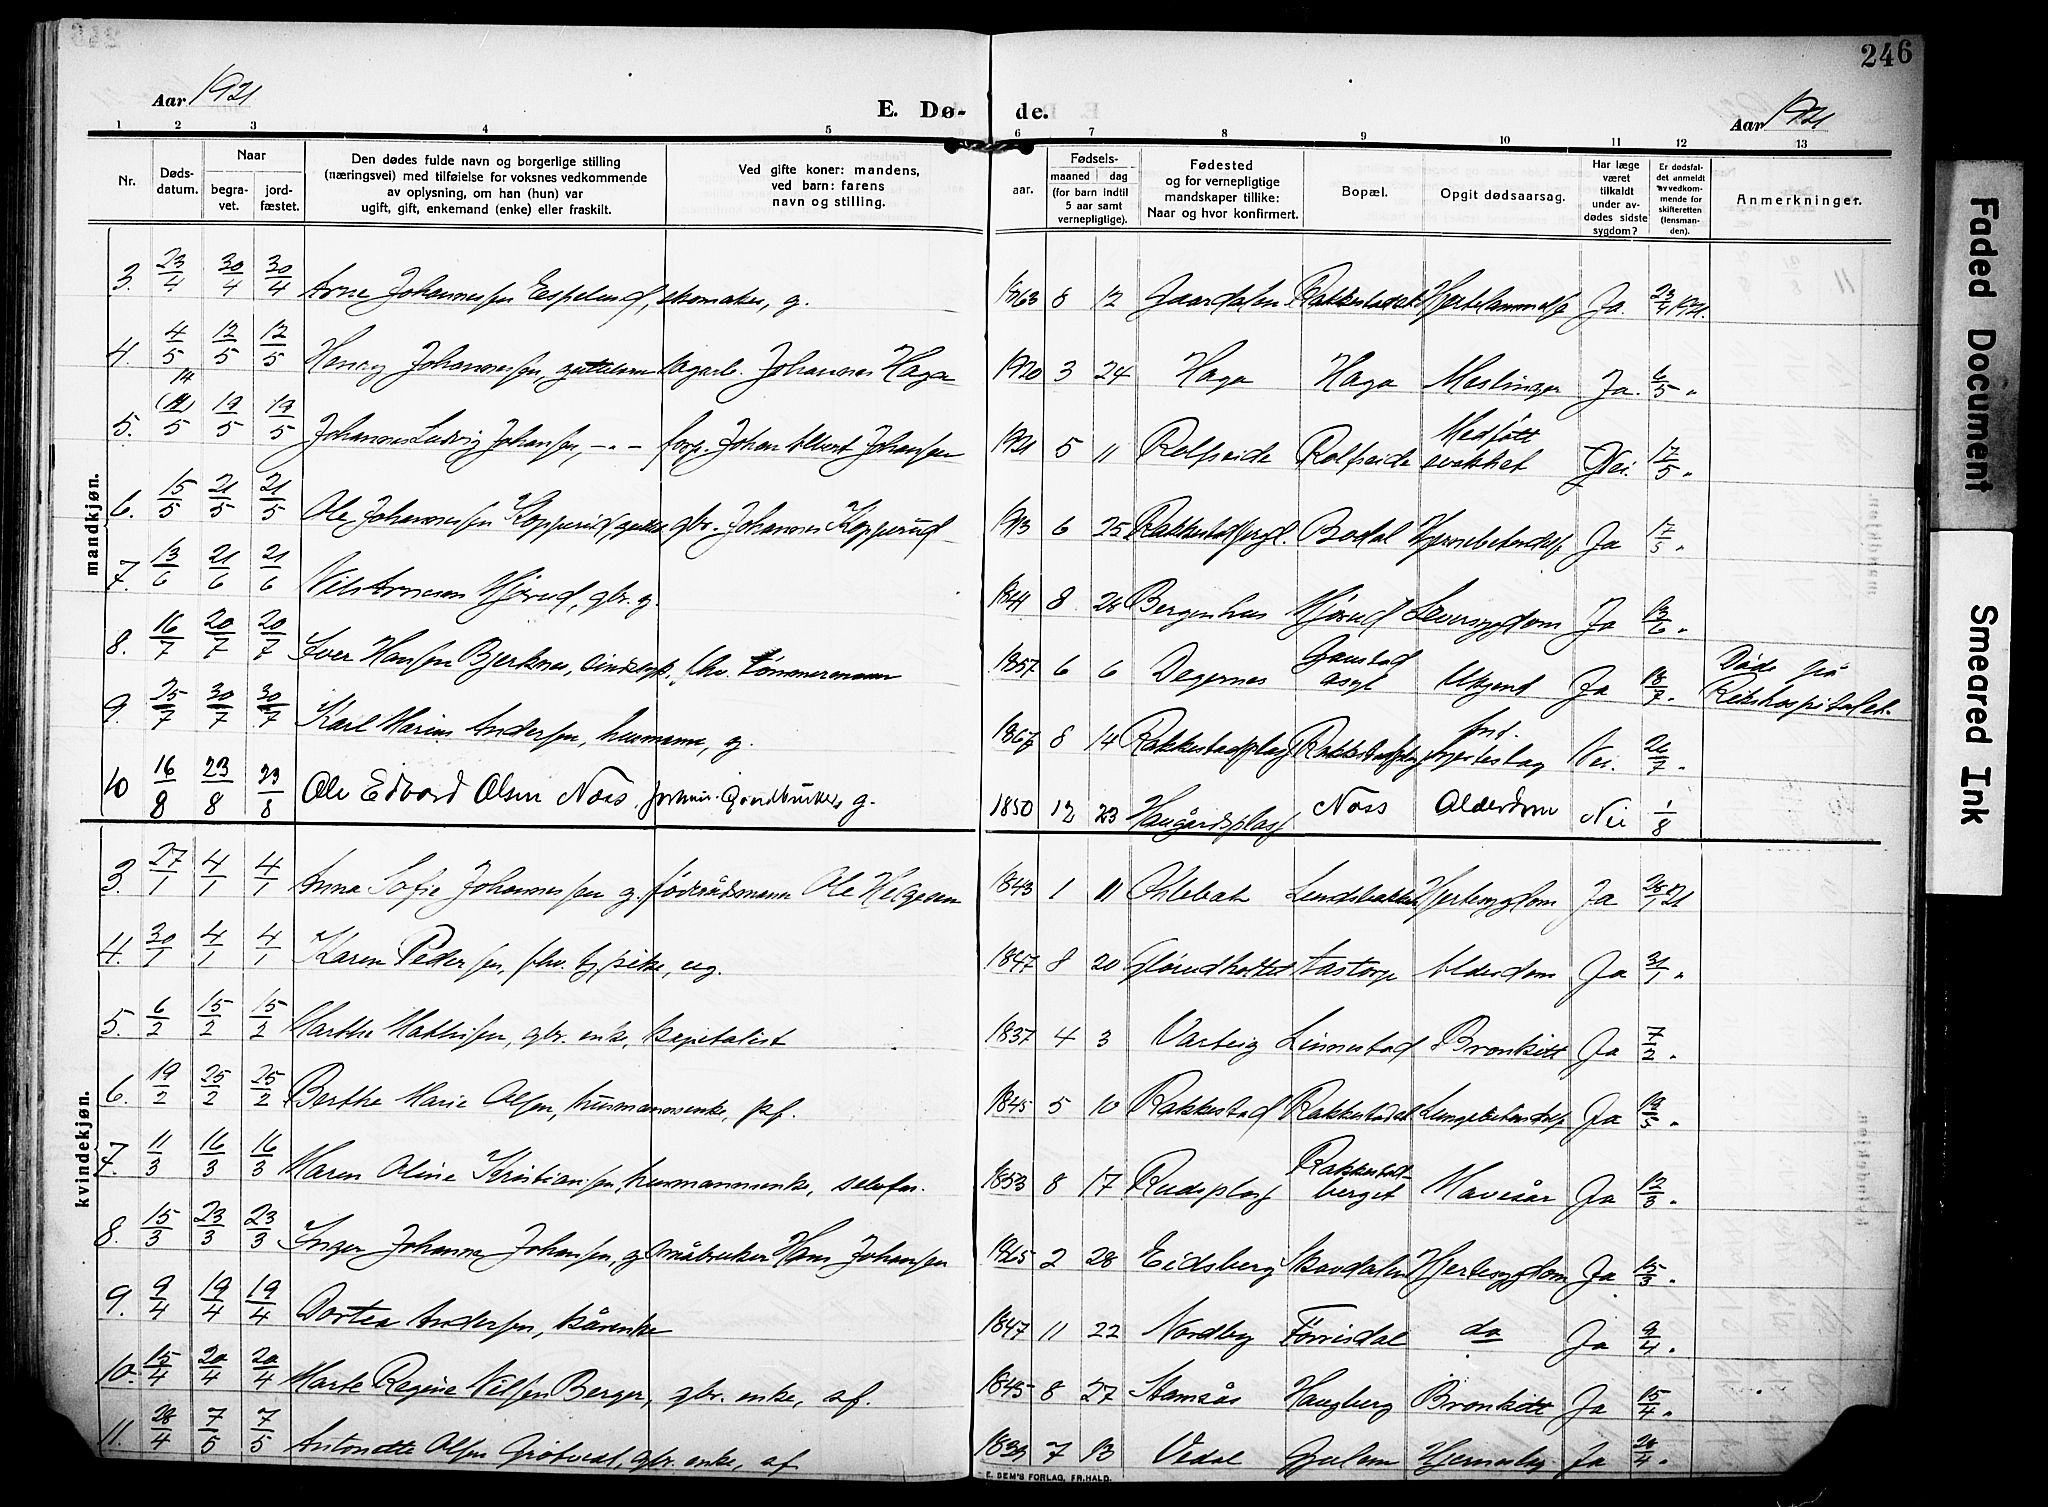 246
Aar 1921
E. Dø- de.
Aar 1921
1 2 3 4 5 6 7 8 9 10 11 12 13
Nr.
Døds-datum.
Naar
begra-vet.
jord-fæstet.
Den dødes fulde navn og borgerlige stilling
(næringsvei) med tilføielse for voksnes vedkommende
av oplysning, om han (hun) var
ugift, gift, enkemand (enke) eller fraskilt.
Ved gifte koner: mandens,
ved barn: farens
navn og stilling.
Fødsels-
aar.
maaned dag
(for barn indtil
5 aar samt
vernepligtige).
Fødested
og for vernepligtige
mandskaper tillike:
Naar og hvor konfirmert.
Bopæl.
Opgit dødsaarsag.
Har læge
været
tilkaldt
under av-
dødes sidste
sygdom?
Er dødsfal-
det anmeldt
av vedkom-
mende for
skifteretten
(lensman-
den).
Anmerkninger.
mandkjøn.
3. 23/4 30/4 30/4 Arne Johannessen Espelund, skomaker, g. 1863 8 12 Gaardalen Rakkestadet Ja. 23/4 1921.
4. 4/5 12/5 12/5 Henry Johannessen, Johannes Haga 1920 3 24 Haga Haga Meslinger Ja. 6/5 "
5. 14 (11)/5 19/5 19/5 Johannes Ludvig Johansen, -"- forp. Johan Albert Johansen 1921 5 11 Rolfseide Rolfseide Medfött svakhet Nei. 17/5 "
6. 15/5 21/5 21/5 Ole Johannessen Kopperud, gbr. Johannes Kopperud 1913 6 25 Bodal Hjernebetendelse Ja 17/5 "
7. 13/6 21/6 21/6 Nils Arnesen Hjörud, gbr. g. 1841 8 28 Bergenhus Hjörud Leversygdom Ja 13/6 "
8. 16/7 20/7 20/7 Iver Hansen Bjerknes, fhv. tömmermann 1857 6 6 Degernes Gaustad asyl Ukjend Ja 18/7 " Döde på Rikshospitalet.
9. 25/7 30/7 30/7 Karl Marius Andersen, husmann, g. 1867 8 14 Rakkestadplads Rakkestadplads Hjerteslag Nei. 26/7 "
10 16/8 23/8 23/8 Ole Edvard Olsen Noss, Gaardbruker, g. 1850 12 23 Haugårdsplass Noss Alderdom Nei 1/8
kvindekjøn.
3. 27/1 4/1 4/1 Anna Sofie Johannessen g. föderådsmann Ole Helgesen 1843 1 11 Ohlebak Lundsbakken Hjertesygdom Ja 28/1 21
4. 30/1 4/1 4/1 Karen Pedersen, fhv. tj.pike, ug. 1847 8 20 Aastorp Alderdom Ja 31/1 "
5. 6/2 15/2 15/2 Marthe Mathissen, gbr. enke, kapitalist 1837 4 3 Varteig Linnestad Bronkitt Ja 7/2 "
6. 19/2 25/2 25/2 Berthe Marie Olsen, husmannsenke, 1845 5 10 Rakkestad Rakkestadet Lungebetendelse Ja 19/5 "
7. 11/3 16/3 16/3 Maren Oline Kristiansen, husmannsenke, selvfor. 1853 8 17 Rudsplass Rakkestad-berget Mavesår Ja 12/3 "
8. 15/3 23/3 23/3 Inger Johanne Johansen, g. småbruker Hans Johansen 1865 2 28 Eidsberg Skovdalen Hjertesygdom Ja 15/3 "
9. 9/4 19/4 19/4 Dortea Andersen, kårenke 1847 11 22 Nordby Förrisdal do Ja 9/4 "
10. 15/4 20/4 20/4 Marte Regine Nilsen Berger, gbr. enke, af. 1845 8 27 Stamsås Haugberg Bronkitt Ja 15/4 "
11. 28/4 7/5 7/5 Antonette Olsen Grötvedt, gbr. enke, af. 1839 7 13 Vedal Gjulem Hjerneslag Ja 28/4 "
E. SEM'S FORLAG, FR.HALD.
Faded Document
Smeared Ink